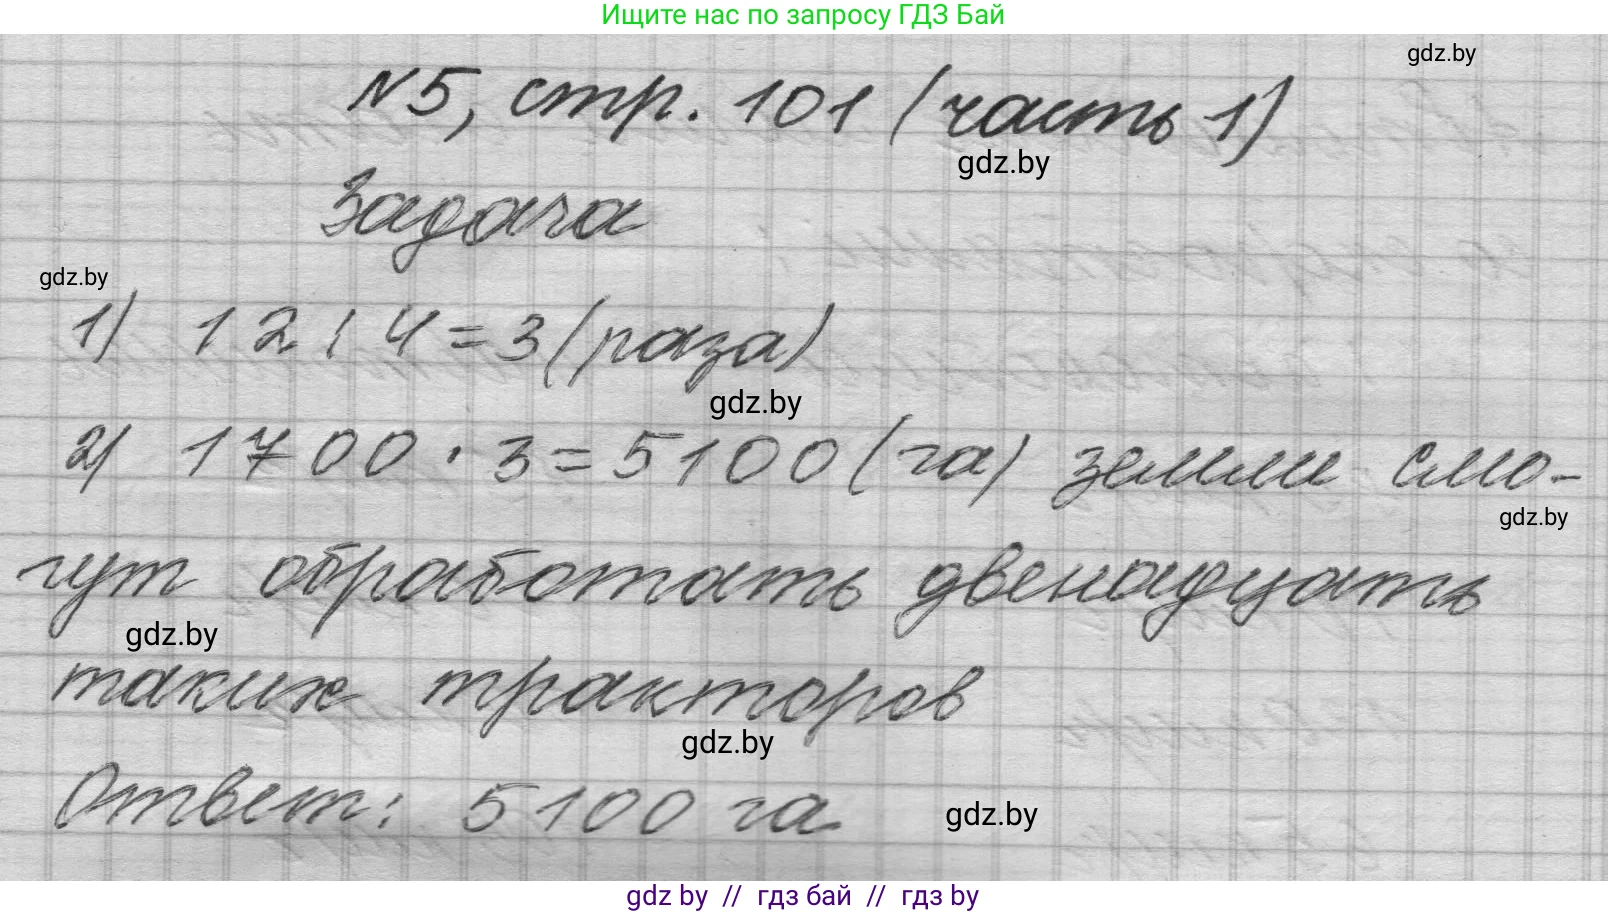 Ищите нас по запросу ГДЗ Бай
gdz.by
N5, стр. 101 (часть 1)
gdz.by
Задача
gdz.by
1) 12 : 4 = 3 (раза)
gdz.by
2) 1700 · 3 = 5100 (га) земли смо-
gdz.by
гут обработать двенадцать
gdz.by
таких тракторов
gdz.by
Ответ: 5100 га
gdz.by
gdz by // гдз бай // гдз by